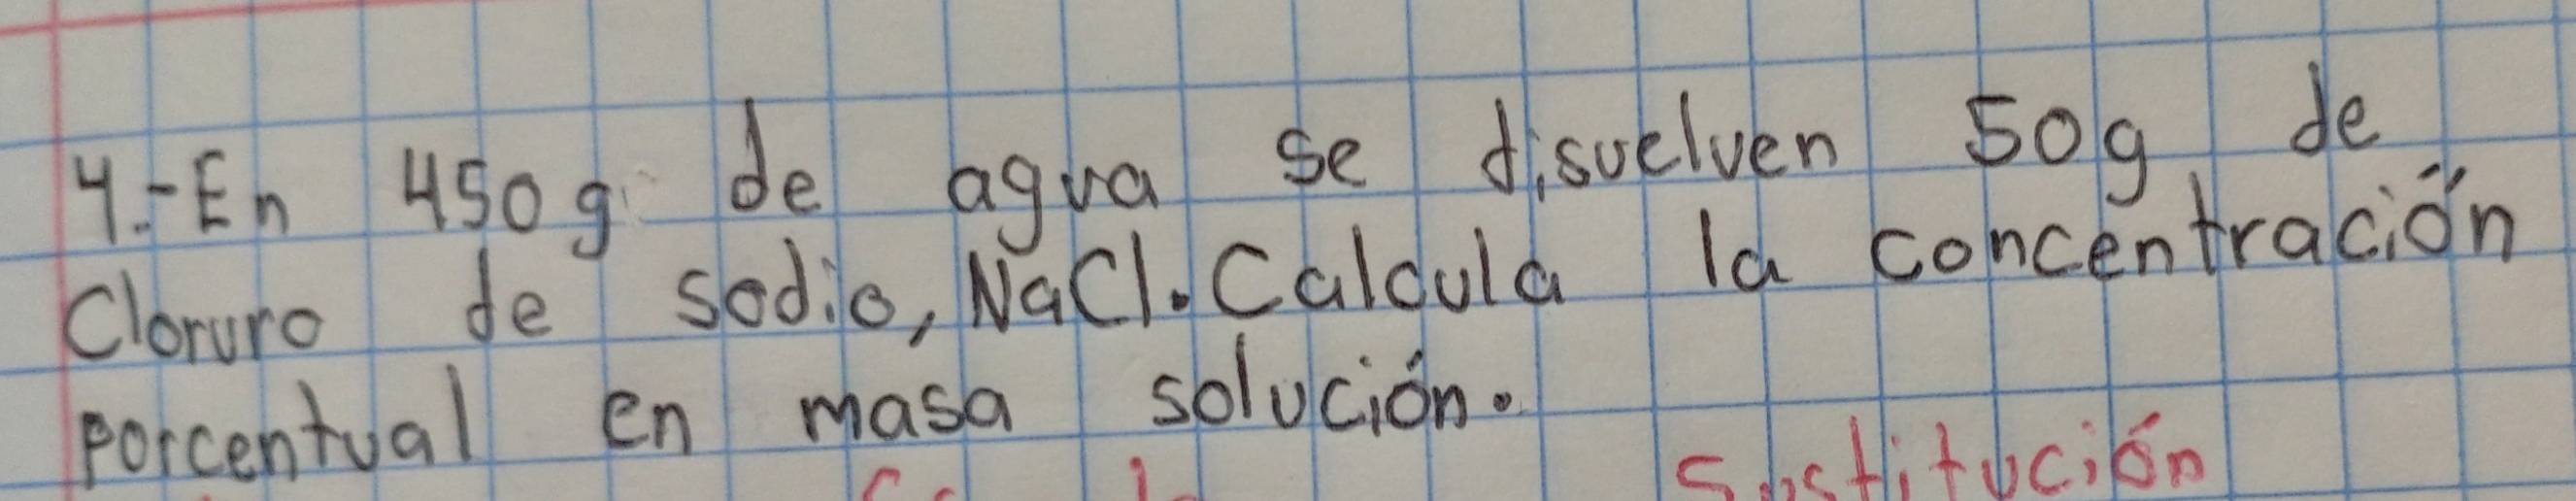 4.-En 450g de agua se disuelven 50g de
Cloruro de sodio, NaCl. Calcula la concentración
porcentual en masa solución.
Sustitución